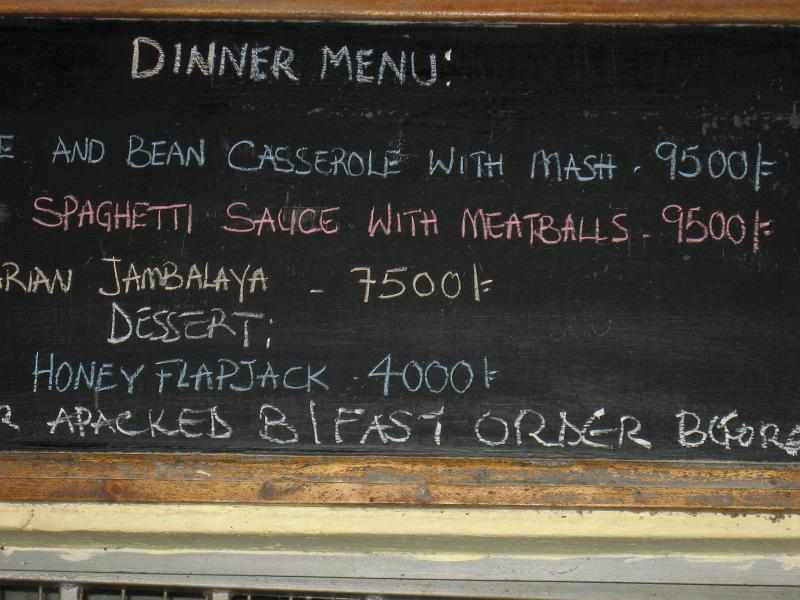 DINNER MENU:
E AND BEAN CASSEROLE WITH MASH - 9500/=
SPAGHETTI SAUCE WITH MEATBALLS - 9500/=
ARIAN JAMBALAYA - 7500/=
DESSERT:
HONEY FLAPJACK - 4000/=
R APACKED B/FAST ORDER BEFORE